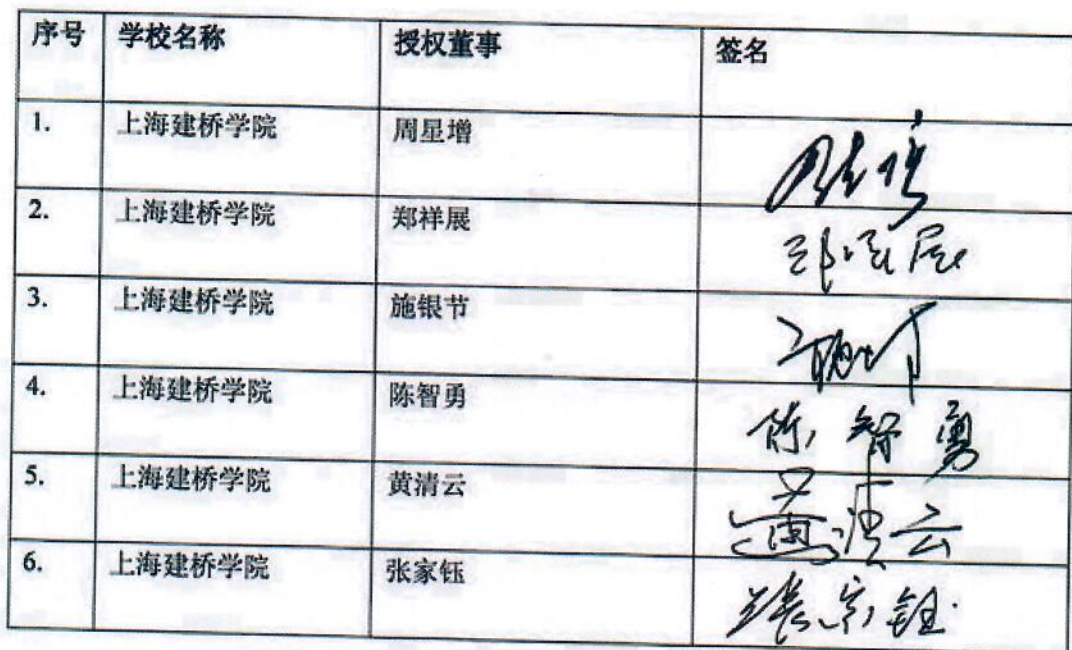 序号 学校名称 授权董事 签名
1. 上海建桥学院 周星增
2. 上海建桥学院 郑祥展
3. 上海建桥学院 施银节
4. 上海建桥学院 陈智勇 陈智勇
5. 上海建桥学院 黄清云 黄清云
6. 上海建桥学院 张家钰 张家钰